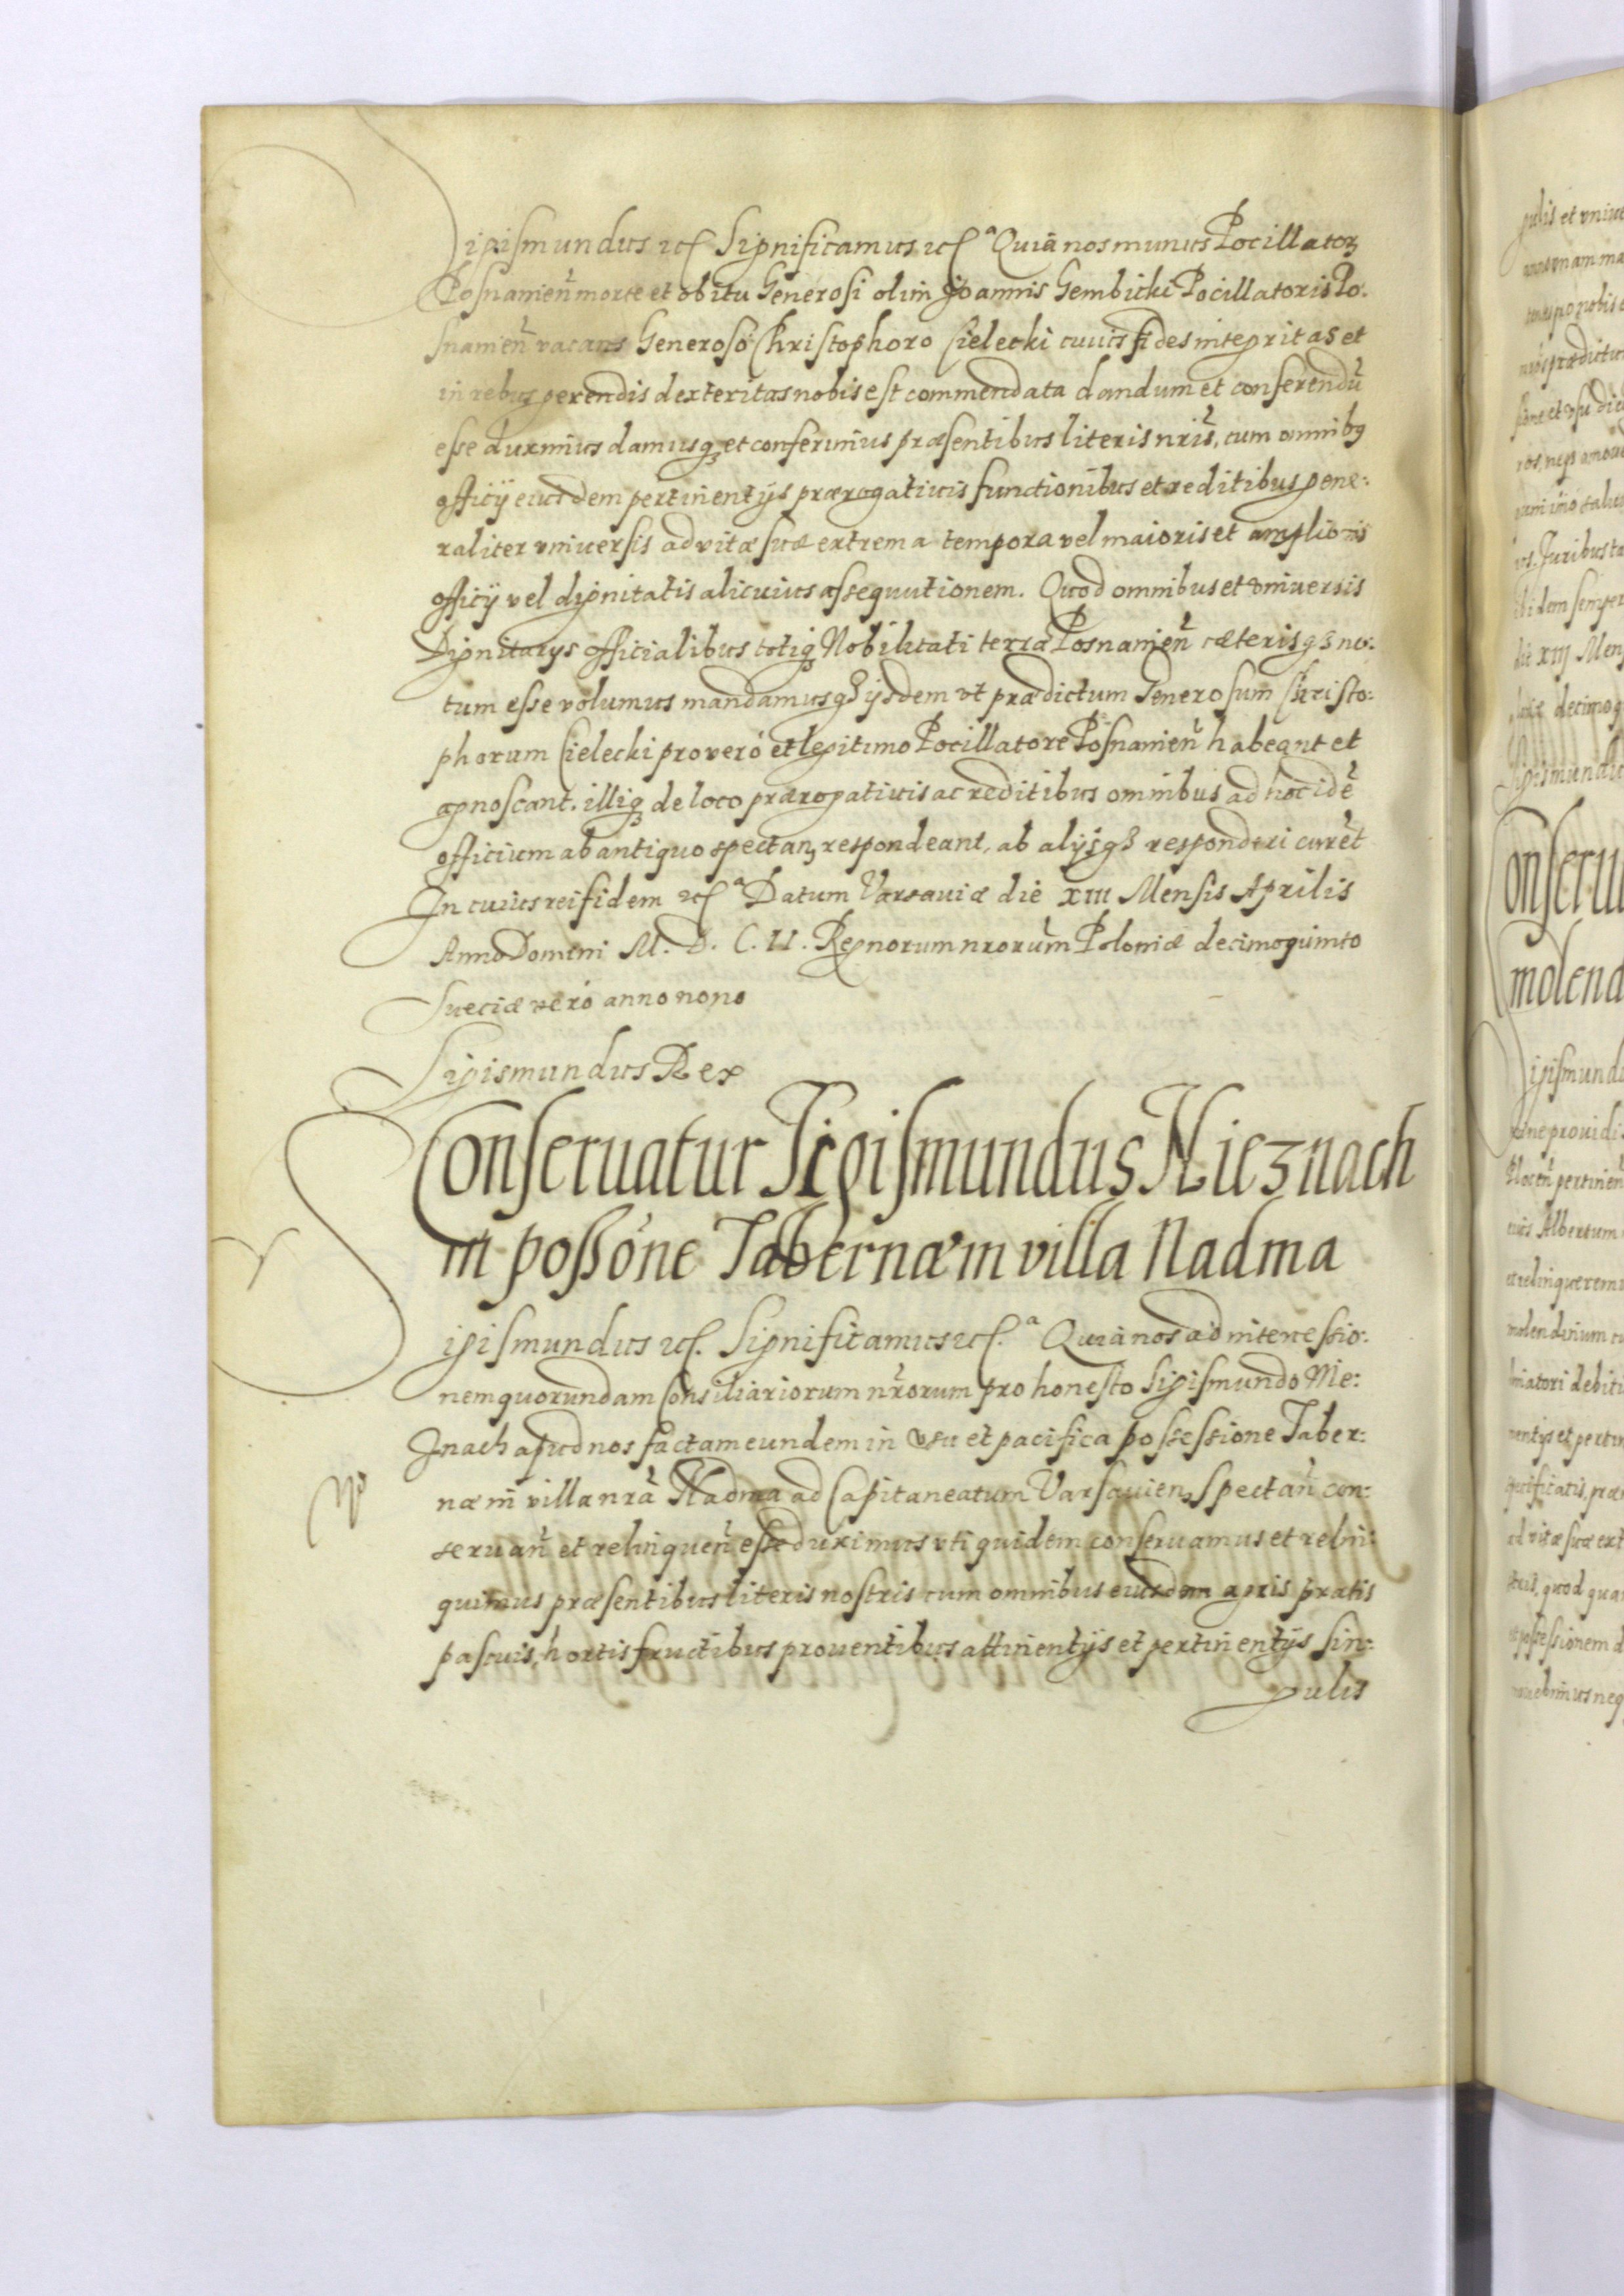 Sigismundus etc. Significamus etc.ª Quia nos munus Pocillatoꝝ
Posnanień morte et obitu Generosi olim Joannis Gembicki Pocillatoris Po:
snanień vacans Generoso Christophoro Cielecki cuius fides integritas et
in rebus gerendis dexteritas nobis est commendata dandum et conferendū
esse duximus damusqꝫ et conferimus præsentibus literis nrīs, cum omnibꝰ
officij eiusdem pertinentijs prærogatiuis functionibus et reditibus gene:
raliter vniuersis ad vitæ suæ extrema tempora vel maioris et amplioris
officij vel dignitatis alicuius assequutionem. Quod omnibus et vniuersis
Dignitarys officialibus totiqꝫ Nobilitati terræ Posnanień cæterisqꝫ no:
tum esse volumus mandamusqꝫ ijsdem vt prædictum Generosum Christo:
phorum Cielecki pro vero et legitimo Pocillatore Posnanień habeant et
agnoscant. illiqꝫ de loco prærogatiuis ac reditibus omnibus ad hoc idē
officium ab antiquo spectanꝫ respondeant, ab alijsqꝫ responderi curēt
In cuius rei fidem etc.ª Datum Varsauiæ die XIII Mensis Aprilis
Anno Domini M. D. C. II. Regnorum nrorūm Poloniæ decimoquinto
Sueciæ vero anno nono
Sigismundus Rex
Conseruatur Sigismundus Nieznach
in possōne Tabernæ in villa Nadma
Sigismundus etc. Significamus etc.ª Quia nos ad intercessio:
nem quorundam Consiliariorum nr̄orum pro honesto Sigismundo Nie:
znach apud nos factam eundem in vsu et pacifica possessione Taber:
næ in villa nrā Nadma ad Capitaneatum Varsauienꝫ spectań con:
seruań et relinqueń esse duximus vti quidem conseruamus et relin:
quimus præsentibus literis nostris cum omnibus eiusdem agris pratis
pascuis, hortis fructibus prouentibus attinentijs et pertinentijs sin:
gulis